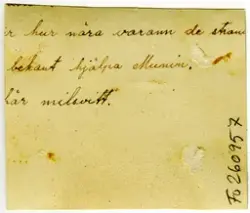 r hur nära varann de stran
bekant hjälpa Munin.
här milsvitt.
Fo260957